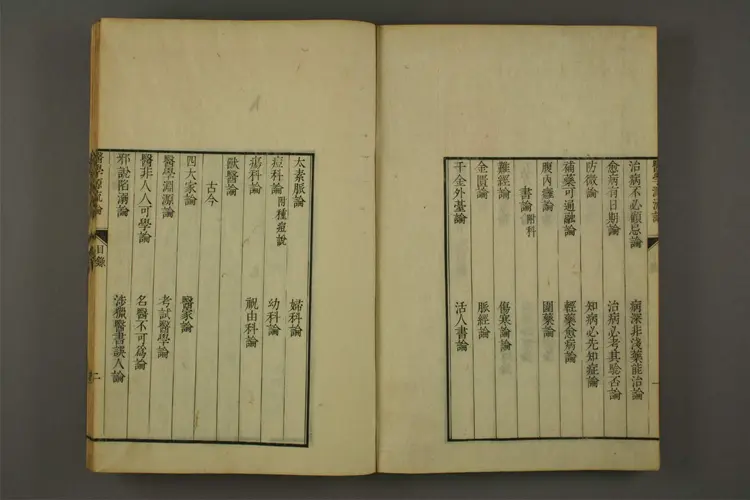 治病不必顧忌論 病深非淺藥能治論
愈病有日期論 治病必考其驗否論
防微論 知病必先知症論
補藥可通融論 輕藥愈病論
腹內癰論 圍藥論
書論附科
難經論 傷寒論論
金匱論 脈經論
千金外臺論 活人書論
太素脈論 婦科論
痘科論附種痘說 幼科論
瘍科論 祝由科論
獸醫論
古今
四大家論 醫家論
醫學淵源論 考試醫學論
醫非人人可學論 名醫不可為論
邪說陷溺論 涉獵醫書誤人論
醫學源流論 目錄 二